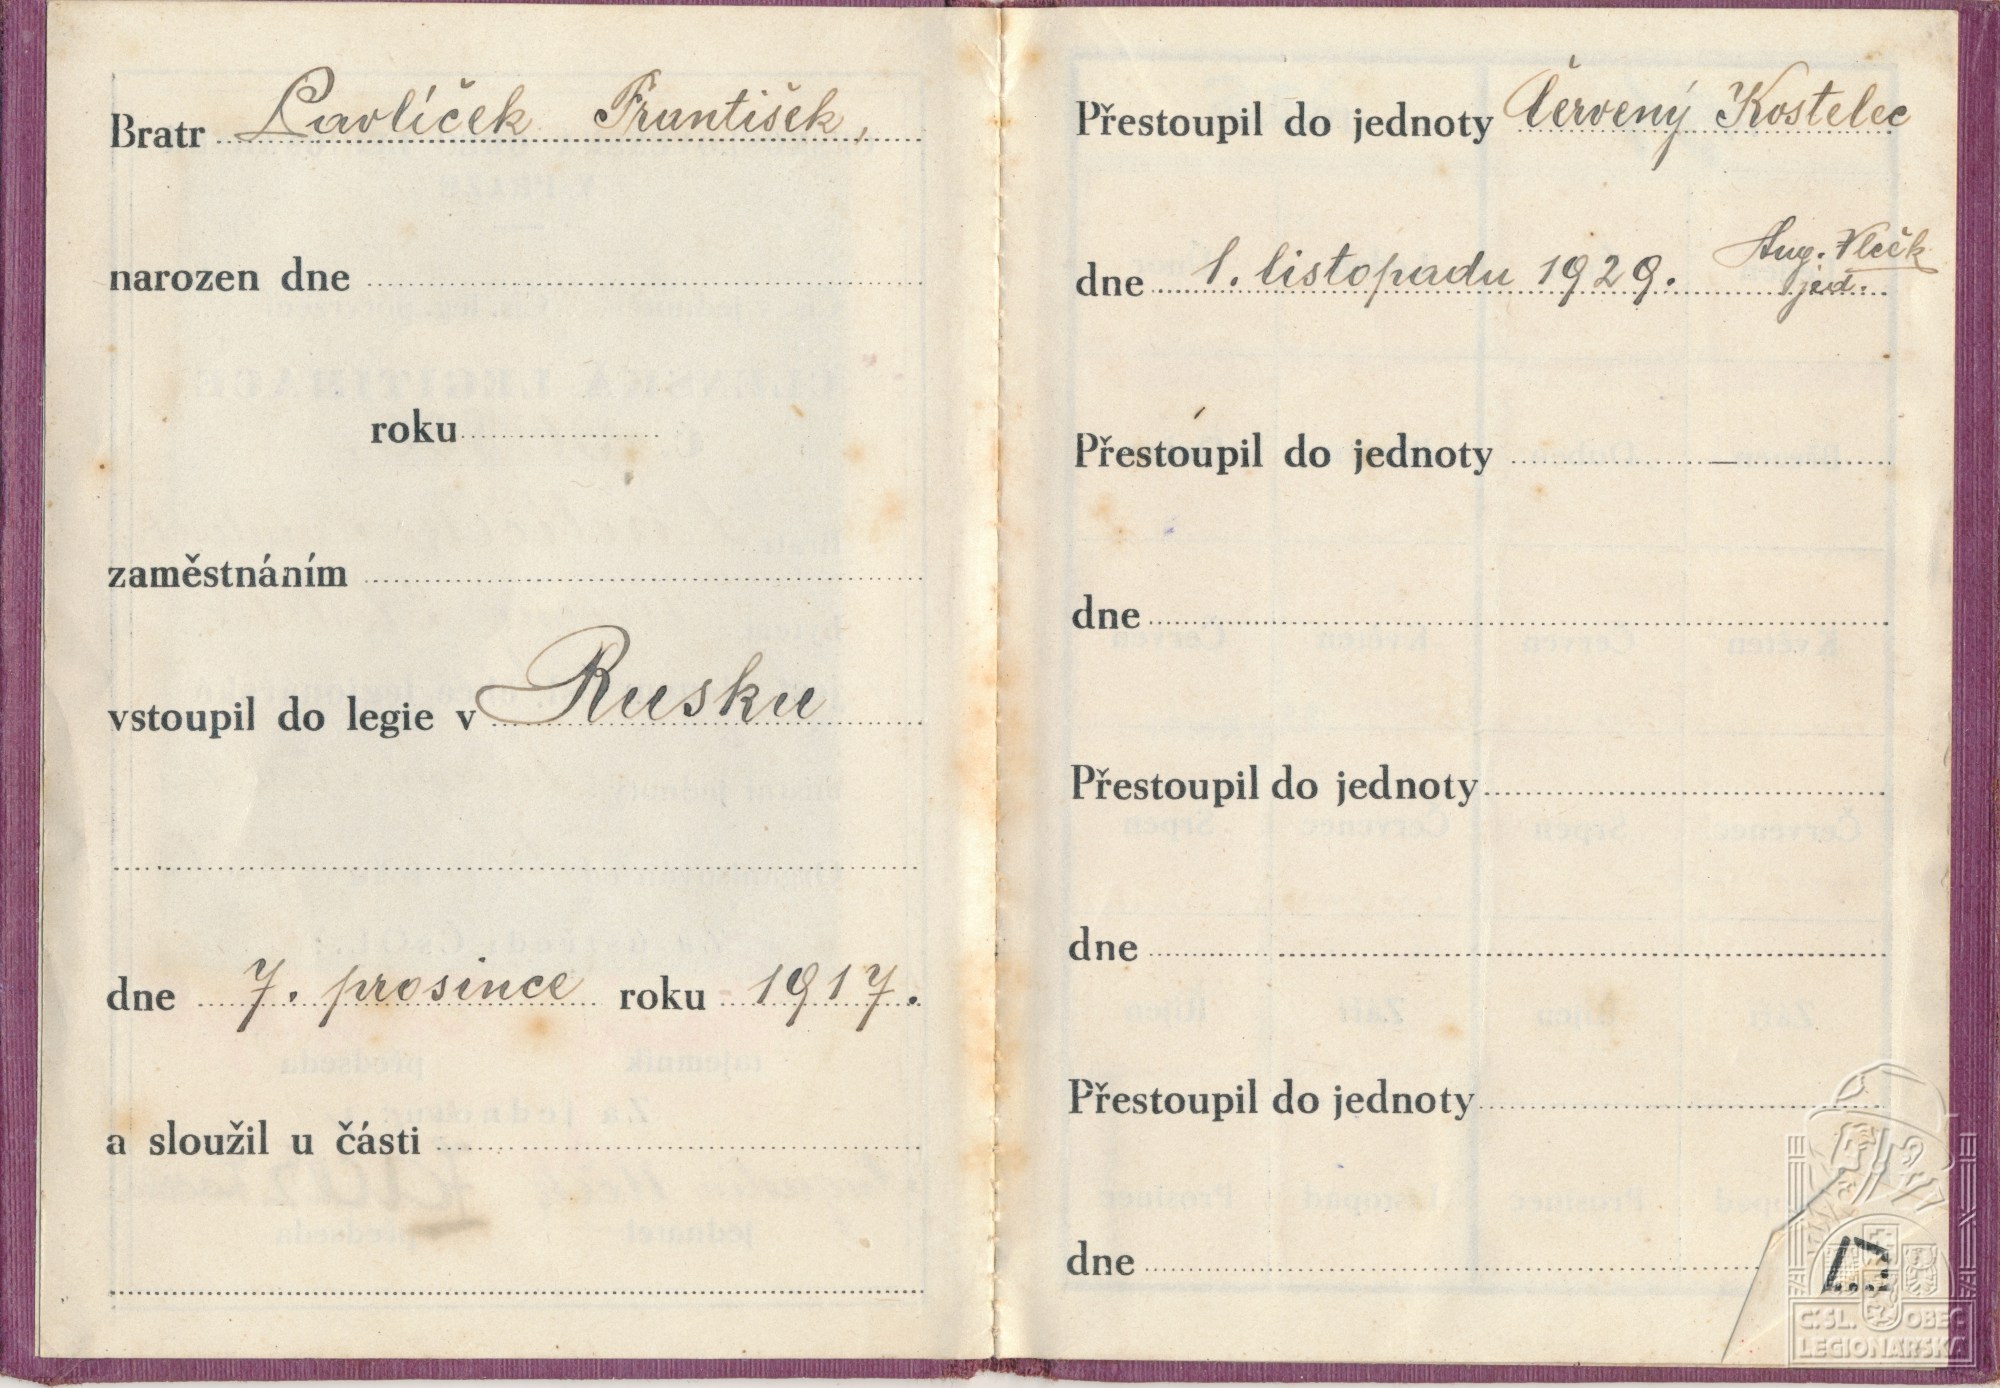 Bratr Pavlíček František,
narozen dne
roku
zaměstnáním
vstoupil do legie v Rusku
dne 7. prosince roku 1917.
a sloužil u části
Přestoupil do jednoty Červený Kostelec
dne 1. listopadu 1929. Aug. Vlček
jed.
Přestoupil do jednoty
dne
Přestoupil do jednoty
dne
Přestoupil do jednoty
dne
Č.SL. OBEC
LEGIONÁŘSKÁ